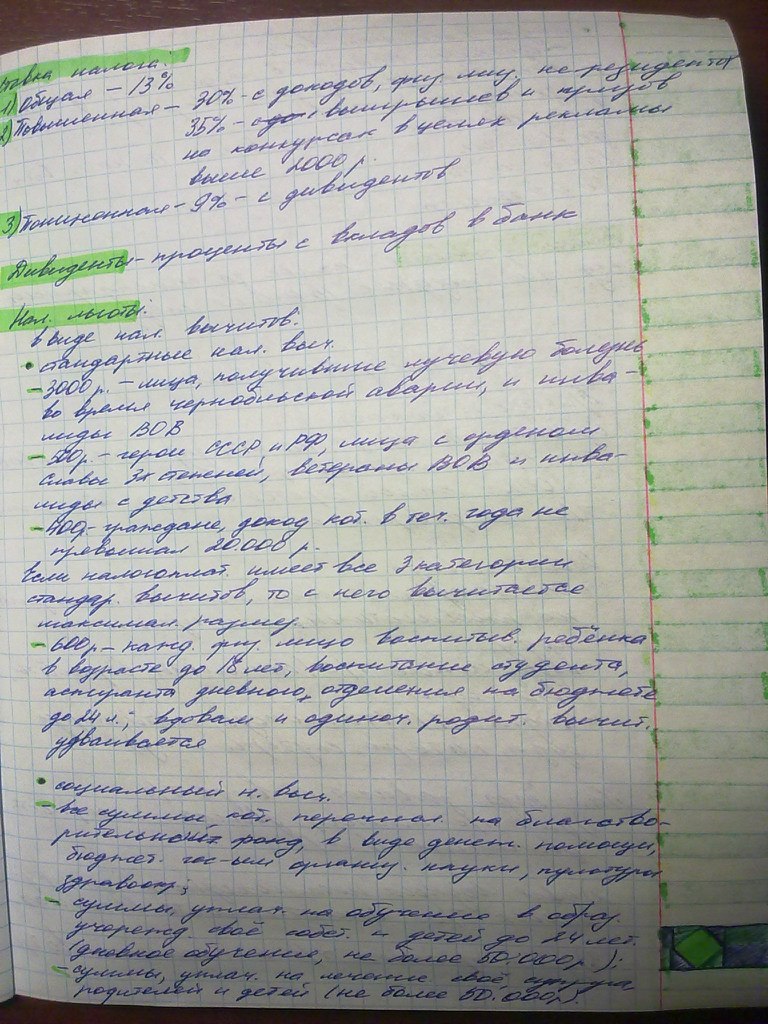 ставка налога:
1) Общая – 13%
2) Повышенная – 30% – с доходов, физ. лиц. не резидентов
35% – с выигрышев и призов
на конкурсах в целях рекламы
выше 2000 р.
3) Пониженная – 9% – с дивидентов
Дивиденты – проценты с вкладов в банк
Нал. льготы:
в виде нал. вычитов.
• стандартные нал. выч.
– 3000 р. – лица, получившие лучевую болезнь
во время чернобыльской аварии, и инва-
лиды ВОВ
– 500р – герои СССР и РФ, лица с орденом
Славы 3х степеней, ветераны ВОВ и инва-
лиды с детства
– 400р – граждане, доход кот. в теч. года не
превышал 20.000 р.
Если налогоплат. имеет все 3 категории
стандар. вычитов, то с него вычитается
максимал. размер.
– 600р – кажд. физ. лицо воспитыв. ребёнка
в возрасте до 18 лет, воспитание студента,
аспиранта дневного отделения на бюджете
до 24 л.; вдовам и одиноч. родит. вычит.
удваивается
• социальный н. выч.
– все суммы кот. перечисл. на благотво-
рительный фонд, в виде денеж. помощи,
бюджет. организ. науки, культуры
здравоохр.;
– суммы, уплач. на обучение в образ.
учрежд. своё собст. и детей до 24 лет.
(дневное обучение, не более 50.000р.);
– суммы, уплач. на лечение своё, супруга
родителей и детей (не более 50.000р).